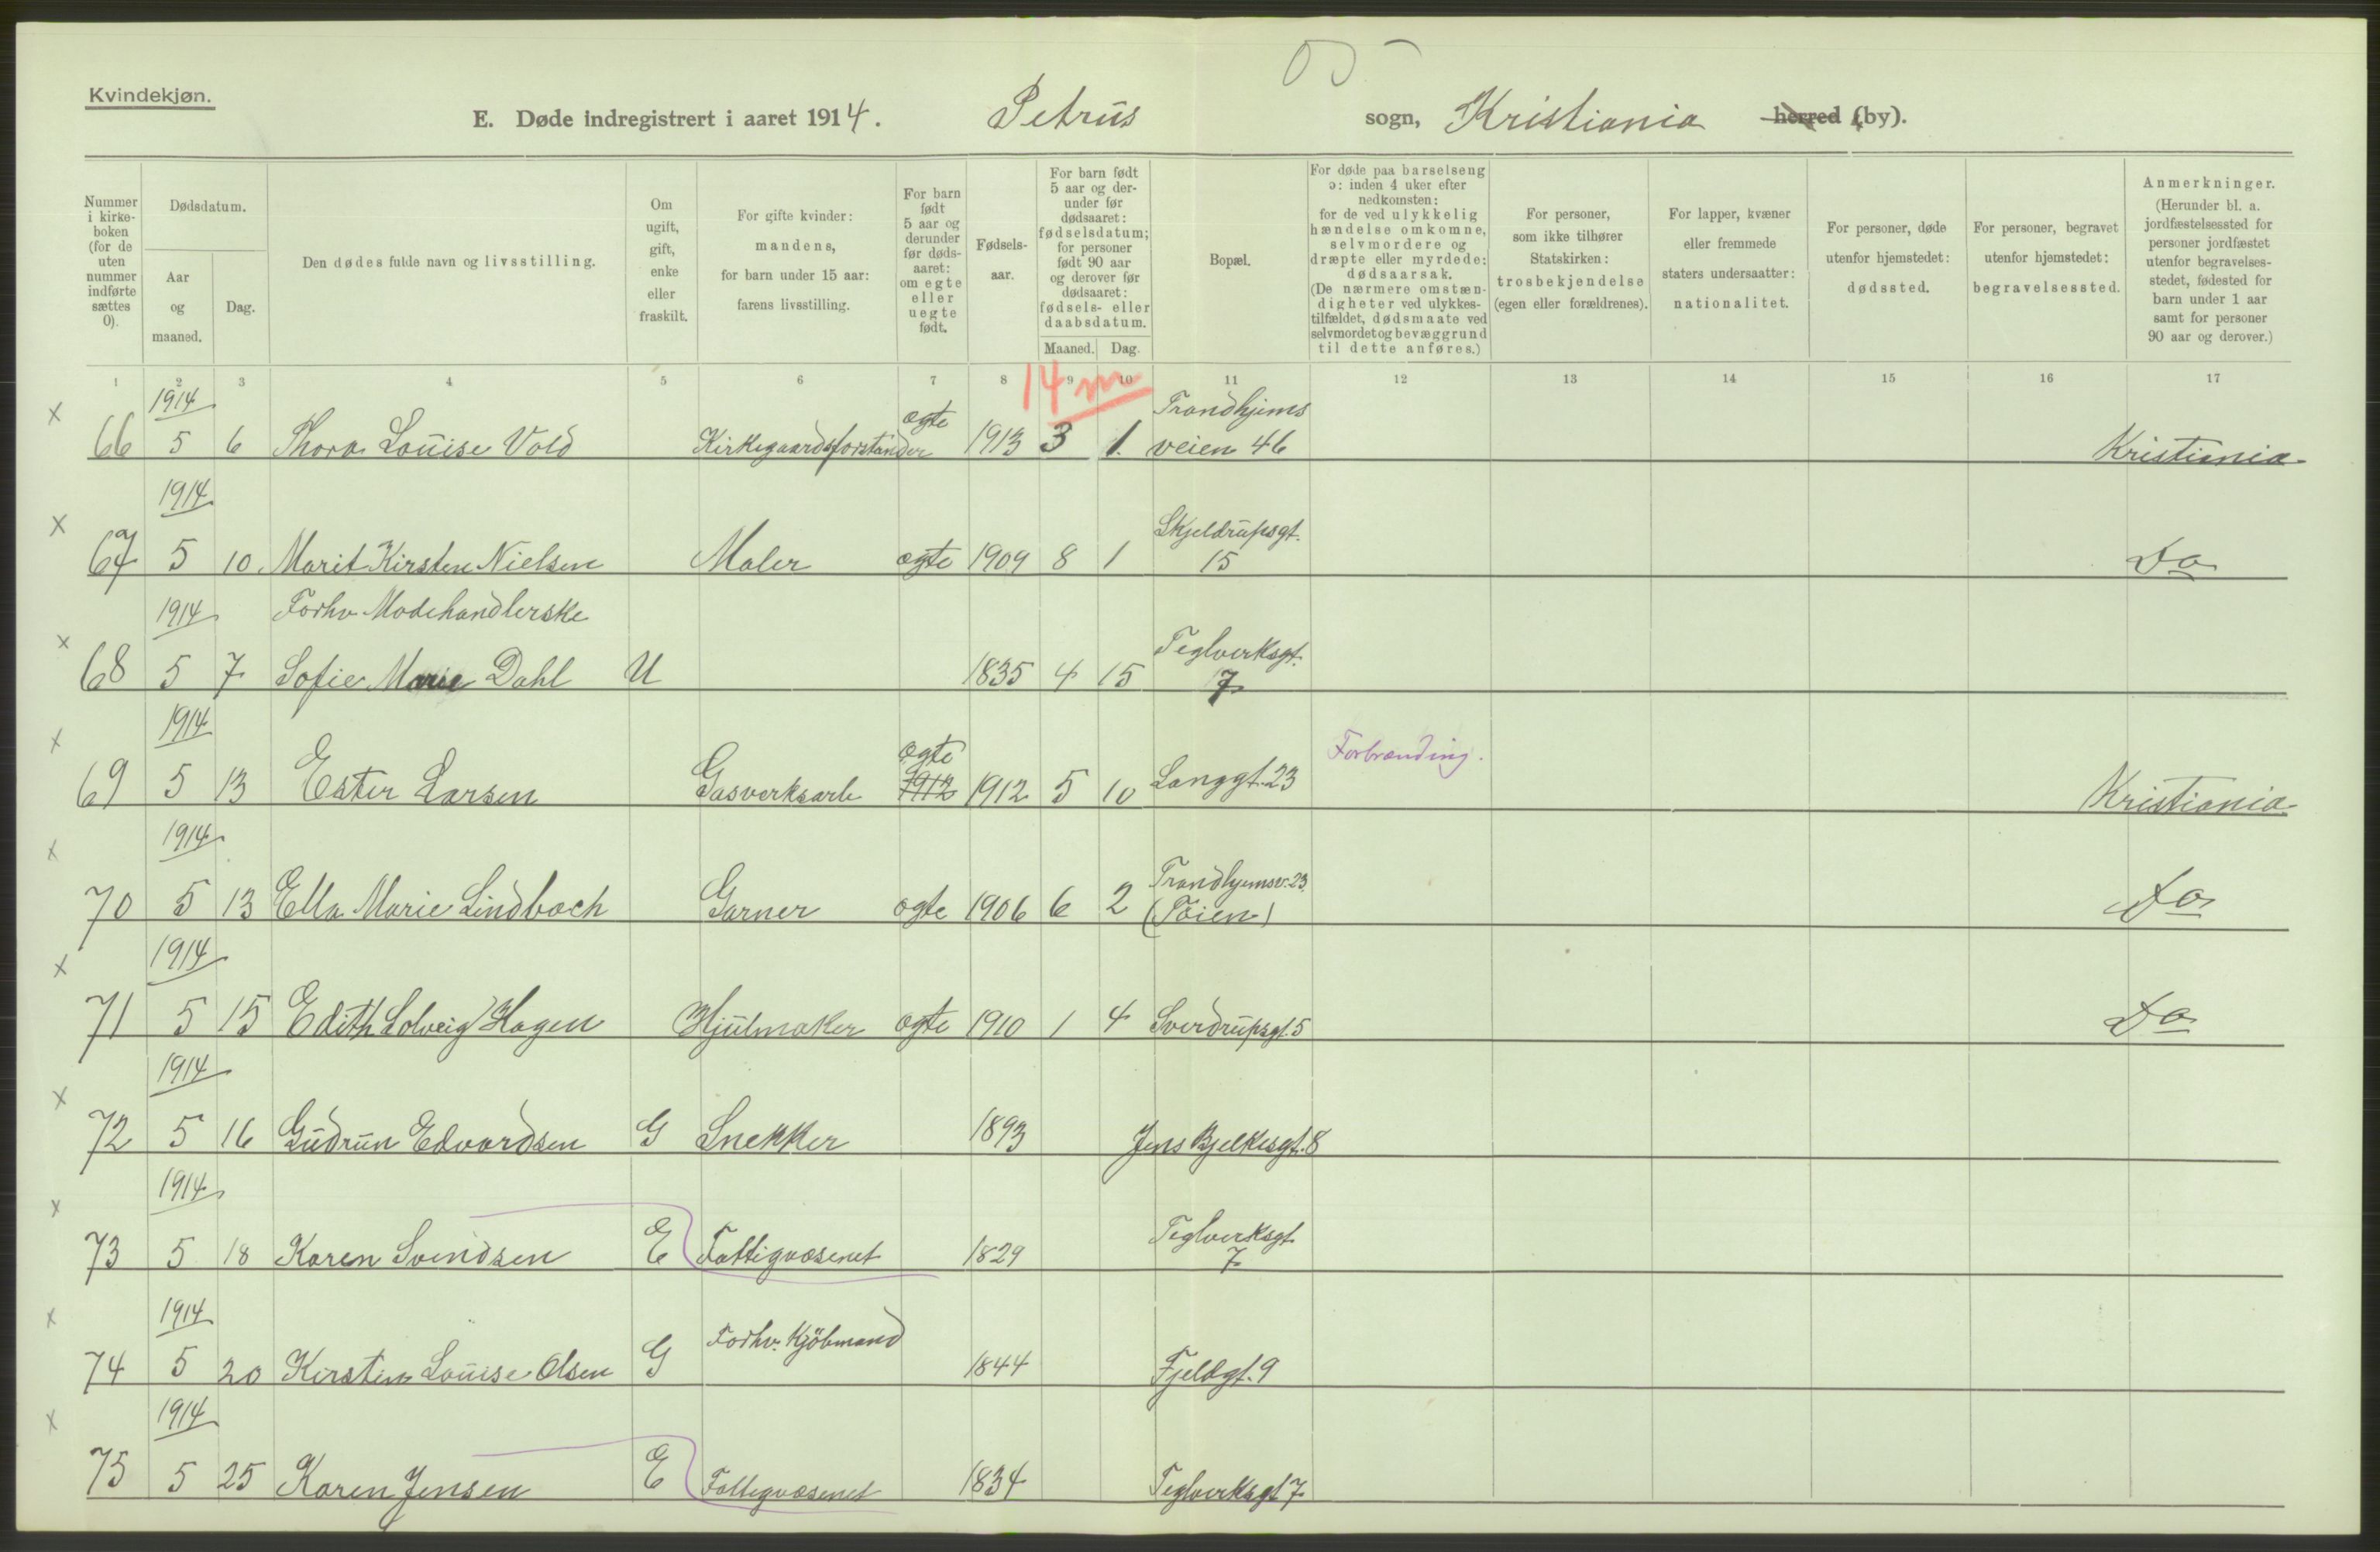 Kvindekjøn.
E. Døde indregistrert i aaret 1914. Petrus sogn, Kristiania herred (by).
Nummer i kirkeboken (for de uten nummer indførte sættes 0).
Dødsdatum.
Aar og maaned.
Dag.
Den dødes fulde navn og livsstilling.
Om ugift, gift, enke eller fraskilt.
For gifte kvinder: mandens, for barn under 15 aar: farens livsstilling.
For barn født 5 aar og derunder før dødsaaret: om egte eller uegte født.
Fødselsaar.
For barn født 5 aar og derunder før dødsaaret: fødselsdatum; for personer født 90 aar og derover før dødsaaret: fødsels- eller daabsdatum.
Maaned. Dag.
Bopæl.
For døde paa barselseng ɔ: inden 4 uker efter nedkomsten: for de ved ulykkelig hændelse omkomne, selvmordere og dræpte eller myrdede: dødsaarsak. (De nærmere omstændigheter ved ulykkestilfældet, dødsmaate ved selvmordet og bevæggrund til dette anføres.)
For personer, som ikke tilhører Statskirken: trosbekjendelse (egen eller forældrenes).
For lapper, kvæner eller fremmede staters undersaatter: nationalitet.
For personer, døde utenfor hjemstedet: dødssted.
For personer, begravet utenfor hjemstedet: begravelsessted.
Anmerkninger. (Herunder bl. a. jordfæstelsessted for personer jordfæstet utenfor begravelsesstedet, fødested for barn under 1 aar samt for personer 90 aar og derover.)
1 2 3 4 5 6 7 8 9 10 11 12 13 14 15 16 17
14 m
1914 ægte Trondhjems
x 66 5 6 Thora Louise Vold Kirkegaardsforstander 1913 3 1. veien 46 Kristiania
1914 Skjeldrupsgt.
x 67 5 10 Marit Kirsten Nielsen Maler ægte 1909 8 1 15 Do
1914 Forhv Modehandlerske Teglverksgt.
x 68 5 7 Sofie Marie Dahl U 1835 4 15 7
1914 ægte Forbrænding.
x 69 5 13 Ester Larsen Gasverksarb 1912 1912 5 10 Langgt. 23 Kristiania
1914 Trondhjemsv. 23
x 70 5 13 Ella Marie Lindbach Garner ægte 1906 6 2 (Töien) Do
1914
x 71 5 15 Edith Solveig Hagen Hjulmaker ægte 1910 1 4 Sverdrupsgt. 5 Do
1914
x 72 5 16 Gudrun Edvardsen G Snekker 1893 Jens Bjelkesgt. 8
1914 Teglverksgt
x 73 5 18 Karen Svendsen E Fattigvæsenet 1829 7
1914 Forhv. Kjöbmand
x 74 5 20 Kirstine Louise Olsen G 1844 Fjeldgt. 9
1914
x 75 5 25 Karen Jensen E Fattigvæsenet 1834 Teglverksgt 7